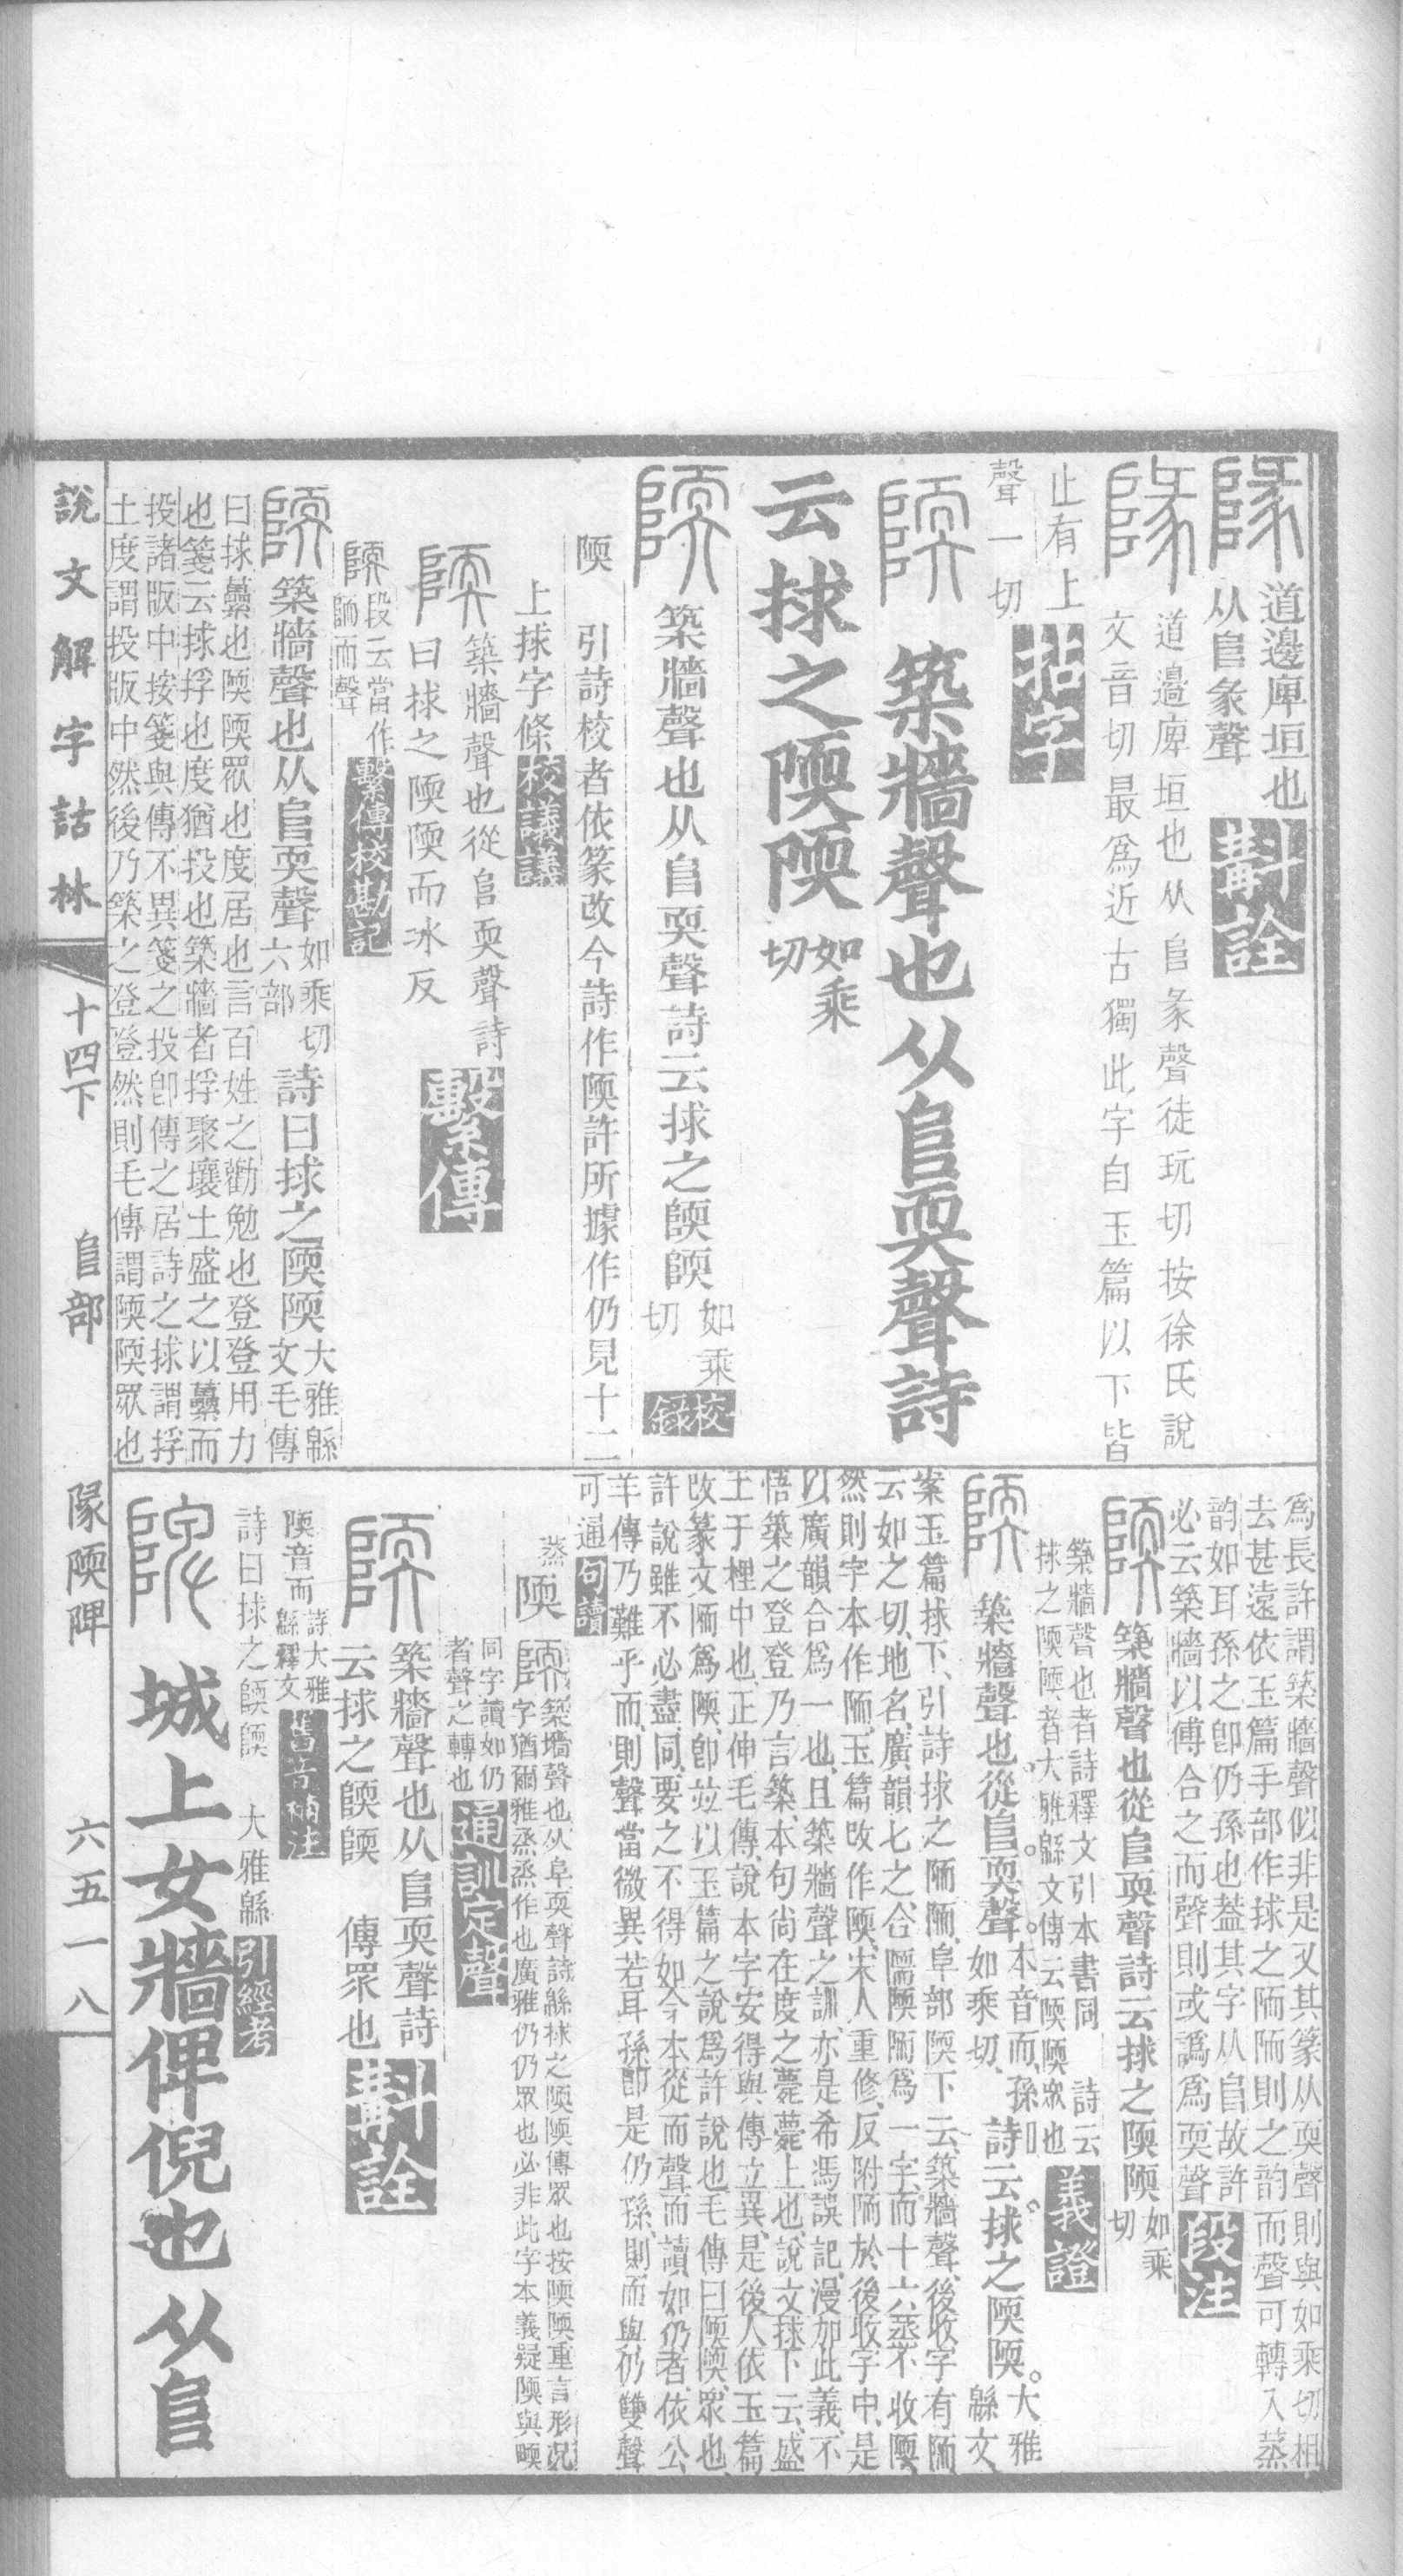 隊
道邊庳垣也
从𨸏彖聲
斠詮
隊
道邊庳垣也从𨸏彖聲徒玩切按徐氏說
文音切最爲近古獨此字自玉篇以下皆
止有上
聲一切
拈字
陾
築牆聲也从𨸏耎聲詩
云捄之陾陾
如乘
切
陾
築牆聲也从𨸏耎聲詩云捄之陾陾
如乘
切
校
錄
陾 引詩校者依篆改今詩作陾許所據作仍見十二
上捄字條
校議議
陾
築牆聲也從𨸏耎聲詩
曰捄之陾陾而冰反
繫傳
陾
段云當作
陑而聲
繫傳校勘記
陾
築牆聲也从𨸏耎聲
如乘切
六部
詩曰捄之陾陾
大雅緜
文毛傳
曰捄虆也陾陾眾也度居也言百姓之勸勉也登登用力
也箋云捄捊也度猶投也築牆者捊聚壤土盛之以虆而
投諸版中按箋與傳不異箋之投卽傳之居詩之捄謂捊
土度謂投版中然後乃築之登登然則毛傳謂陾陾眾也
說文解字詁林
十四下
𨸏部
隊陾陴
六五一八
爲長許謂築牆聲似非是又其篆从耎聲則與如乘切相
去甚遠依玉篇手部作捄之陑陑則之韵而聲可轉入蒸
韵如耳孫之卽仍孫也葢其字从𨸏故許
必云築牆以傅合之而聲則或譌爲耎聲
段注
陾
築牆聲也從𨸏耎聲詩云捄之陾陾
如乘
切
築牆聲也者詩釋文引本書同 詩云
捄之陾陾者大雅緜文傳云陾陾眾也
義證
陾
築牆聲也從𨸏耎聲。
本音而孫卽
如乘切
詩云捄之陾陾。
大雅
緜文
案玉篇捄下、引詩捄之陑陑、阜部陾下云、築牆聲、後收字有陑
云如之切、地名、廣韻七之、合隭陾陑爲一字、而十六蒸不收陾、
然則字本作陑、玉篇改作陾、宋人重修、反附陑於後收字中、是
以廣韻合爲一也、且築牆聲之訓、亦是希馮誤記、漫加此義、不
悟築之登登乃言築、本句尙在度之薨薨上也、說文捄下云、盛
土于梩中也、正伸毛傳、說本字安得與傳立異、是後人依玉篇
改篆文陑爲陾、卽竝以玉篇之說爲許說也、毛傳曰陾陾、眾也、
許說雖不必盡同、要之不得如今本從而聲而讀如仍者、依公
羊傳乃難乎而、則聲當微異、若耳孫卽是仍孫、則而與仍雙聲
可通
句讀
蒸
陾
陾
築墻聲也从阜耎聲詩緜捄之陾陾傳眾也按陾陾重言形況
字猶爾雅烝烝作也廣雅仍仍眾也必非此字本義疑陾與㬉
同字讀如仍
者聲之轉也
通訓定聲
陾
築牆聲也从𨸏耎聲詩
云捄之陾陾 傳眾也
斠詮
陾音而
詩大雅
緜釋文
舊音補注
詩曰捄之陾陾 大雅緜
引經考
陴
城上女牆俾倪也从𨸏